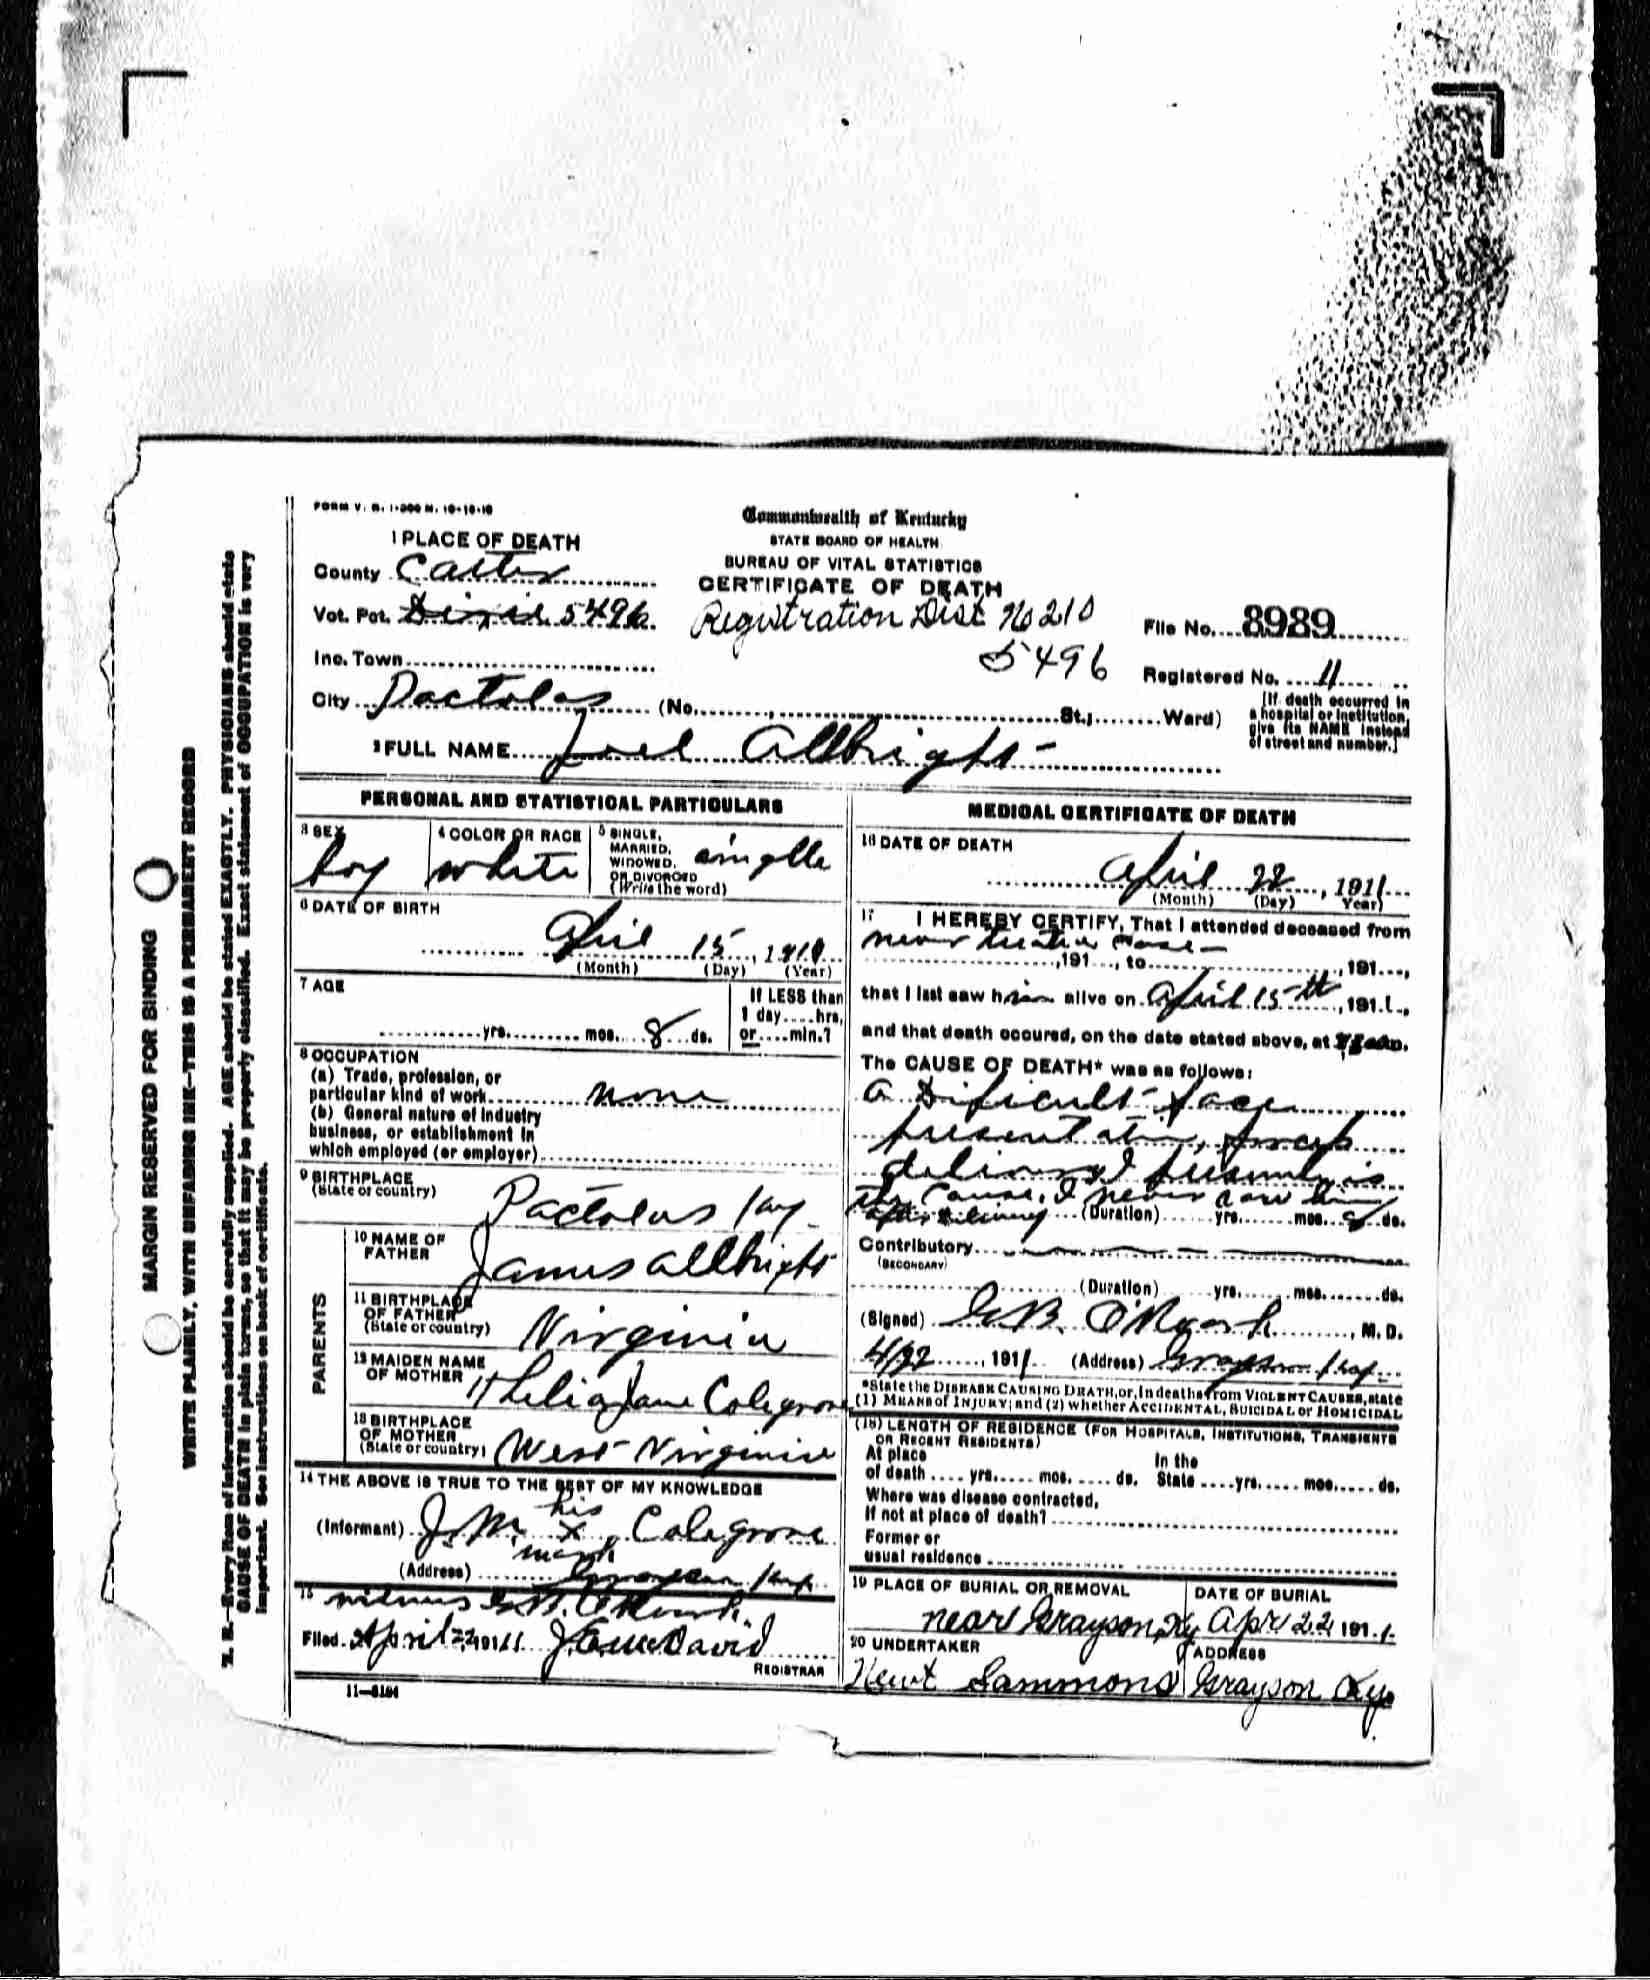 FORM V. S. 1-200 M. 10-18-10
Commonwealth of Kentucky
STATE BOARD OF HEALTH
BUREAU OF VITAL STATISTICS
CERTIFICATE OF DEATH
1 PLACE OF DEATH
County Carter
Vot. Pct. Dixie 5496
Registration Dist No 210
5496
File No. 8989
Inc. Town
Registered No. 11
City Pactolas (No. , St.; Ward)
[If death occurred in a hospital or institution, give its NAME instead of street and number.]
2 FULL NAME Joel Allbright
PERSONAL AND STATISTICAL PARTICULARS
3 SEX
boy
4 COLOR OR RACE
white
5 SINGLE, MARRIED, WIDOWED, OR DIVORCED (Write the word)
singlle
6 DATE OF BIRTH
April 15, 191
(Month) (Day) (Year)
7 AGE
yrs. mos. 8 ds.
If LESS than 1 day....hrs, or....min.?
8 OCCUPATION
(a) Trade, profession, or
particular kind of work none
(b) General nature of industry
business, or establishment in
which employed (or employer)
9 BIRTHPLACE
(State or country)
Pactolus Ky
PARENTS
10 NAME OF FATHER
James Allbright
11 BIRTHPLACE OF FATHER (State or country)
Virginia
12 MAIDEN NAME OF MOTHER
Jane Colegrove
13 BIRTHPLACE OF MOTHER (State or country)
West Virginia
14 THE ABOVE IS TRUE TO THE BEST OF MY KNOWLEDGE
(Informant) J.M. his x mark Colegrove
(Address) Grayson Ky
15
Filed April 22 1911 J. McDavid
REGISTRAR
11-3184
MEDICAL CERTIFICATE OF DEATH
16 DATE OF DEATH
April 22, 1911
(Month) (Day) Year)
17 I HEREBY CERTIFY, That I attended deceased from
never
,191..., to , 191...,
that I last saw him alive on April 15th, 1911,
and that death occured, on the date stated above, at
The CAUSE OF DEATH* was as follows:
A Dificult face
presentation, forceps
delivered presumly is
the Cause, I never saw him
after delivery (Duration) yrs. mos. ds.
Contributory
(SECONDARY)
(Duration) yrs. mos. ds.
(Signed) G.B. O'Roark, M. D.
4/22, 1911 (Address) Grayson Ky
*State the DISEASE CAUSING DEATH, or, in deaths from VIOLENT CAUSES, state
(1) MEANS of INJURY; and (2) whether ACCIDENTAL, SUICIDAL or HOMICIDAL
(18) LENGTH OF RESIDENCE (FOR HOSPITALS, INSTITUTIONS, TRANSIENTS
OR RECENT RESIDENTS)
At place In the
of death .... yrs. .... mos. .... ds. State .... yrs. .... mos. .... ds.
Where was disease contracted,
If not at place of death?
Former or
usual residence
19 PLACE OF BURIAL OR REMOVAL
near Grayson, Ky
DATE OF BURIAL
Apr 22 1911.
20 UNDERTAKER
Newt Sammons
ADDRESS
Grayson Ky
MARGIN RESERVED FOR BINDING
WRITE PLAINLY, WITH UNFADING INK—THIS IS A PERMANENT RECORD
N. B.—Every item of information should be carefully supplied. AGE should be stated EXACTLY. PHYSICIANS should state
CAUSE OF DEATH in plain terms, so that it may be properly classified. Exact statement of OCCUPATION is very
important. See instructions on back of certificate.